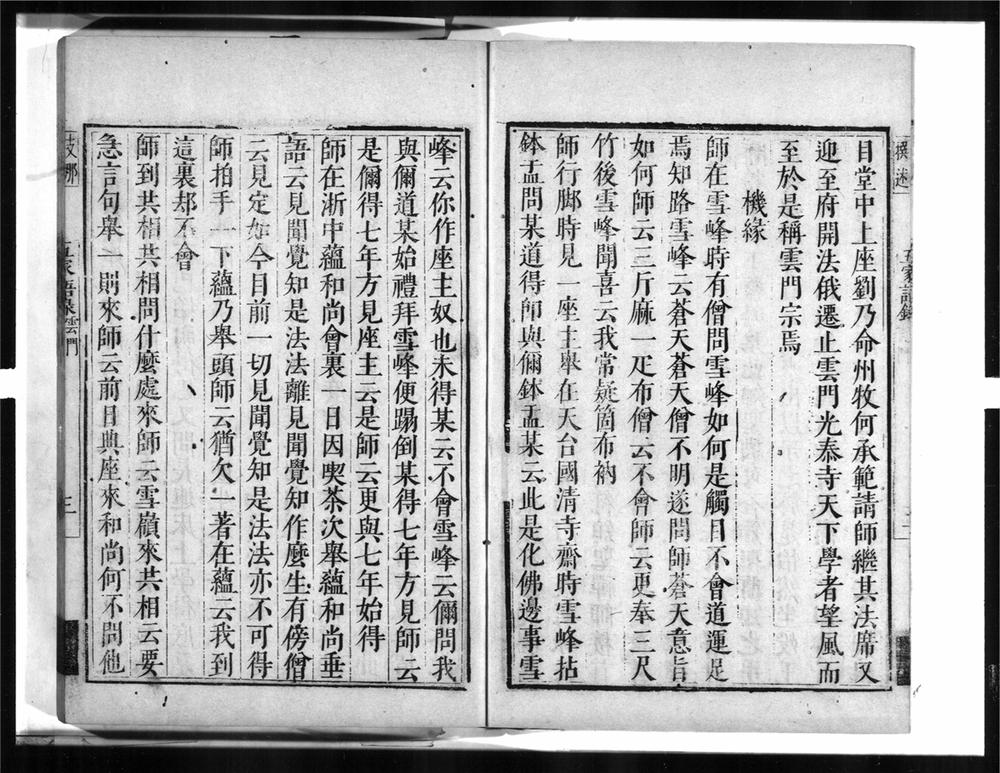 撰述
五家語錄
二
目堂中上座劉乃命州牧何承範請師繼其法席又
迎至府開法俄遷止雲門光泰寺天下學者望風而
至於是稱雲門宗焉
機緣
師在雪峰時有僧問雪峰如何是觸目不會道運足
焉知路雪峰云蒼天蒼天僧不明遂問師蒼天意旨
如何師云三斤麻一疋布僧云不會師云更奉三尺
竹後雪峰聞喜云我常疑箇布衲
師行脚時見一座主舉在天台國清寺齋時雪峰拈
鉢盂問某道得卽與儞鉢盂某云此是化佛邊事雪
峰云你作座主奴也未得某云不會雪峰云儞問我
與儞道某始禮拜雪峰便蹋倒某得七年方見師云
是儞得七年方見座主云是師云更與七年始得
師在浙中蘊和尚會裏一日因喫茶次舉蘊和尚垂
語云見聞覺知是法法離見聞覺知作麼生有傍僧
云見定如今目前一切見聞覺知是法法亦不可得
師拍手一下蘊乃舉頭師云猶欠一著在蘊云我到
這裏却不會
師到共相共相問什麼處來師云雪嶺來共相云要
急言句舉一則來師云前日典座來和尚何不問他
支那
五家語錄雲門
三